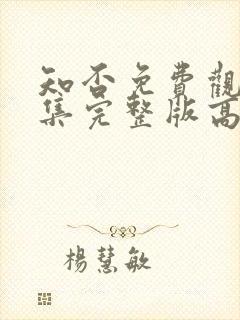 知否免費觀
集完整版高
楊慧敏